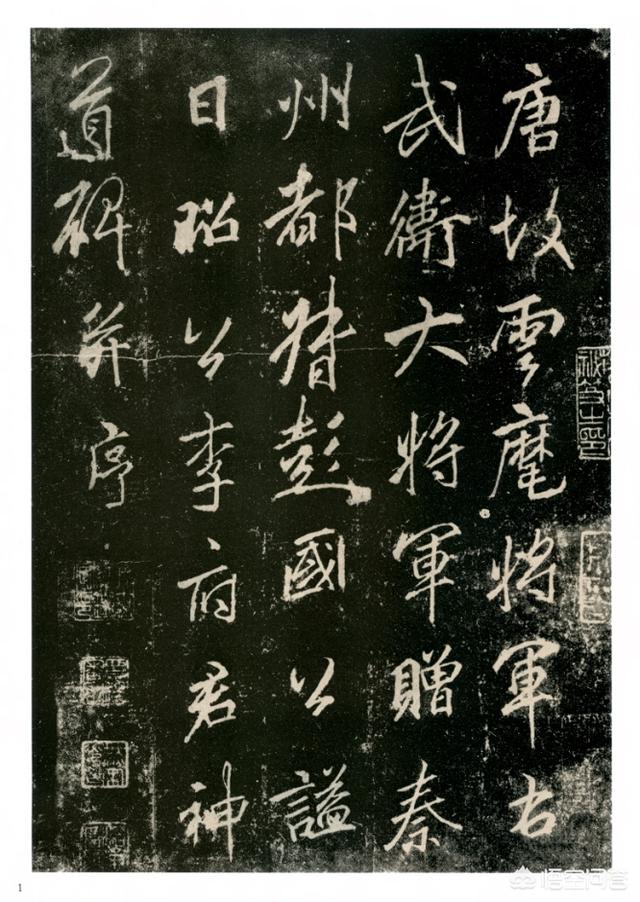 唐故雲麾將軍右
武衛大將軍贈秦
州都督彭國公謚
曰昭公李府君神
道碑并序
1
悟空问答